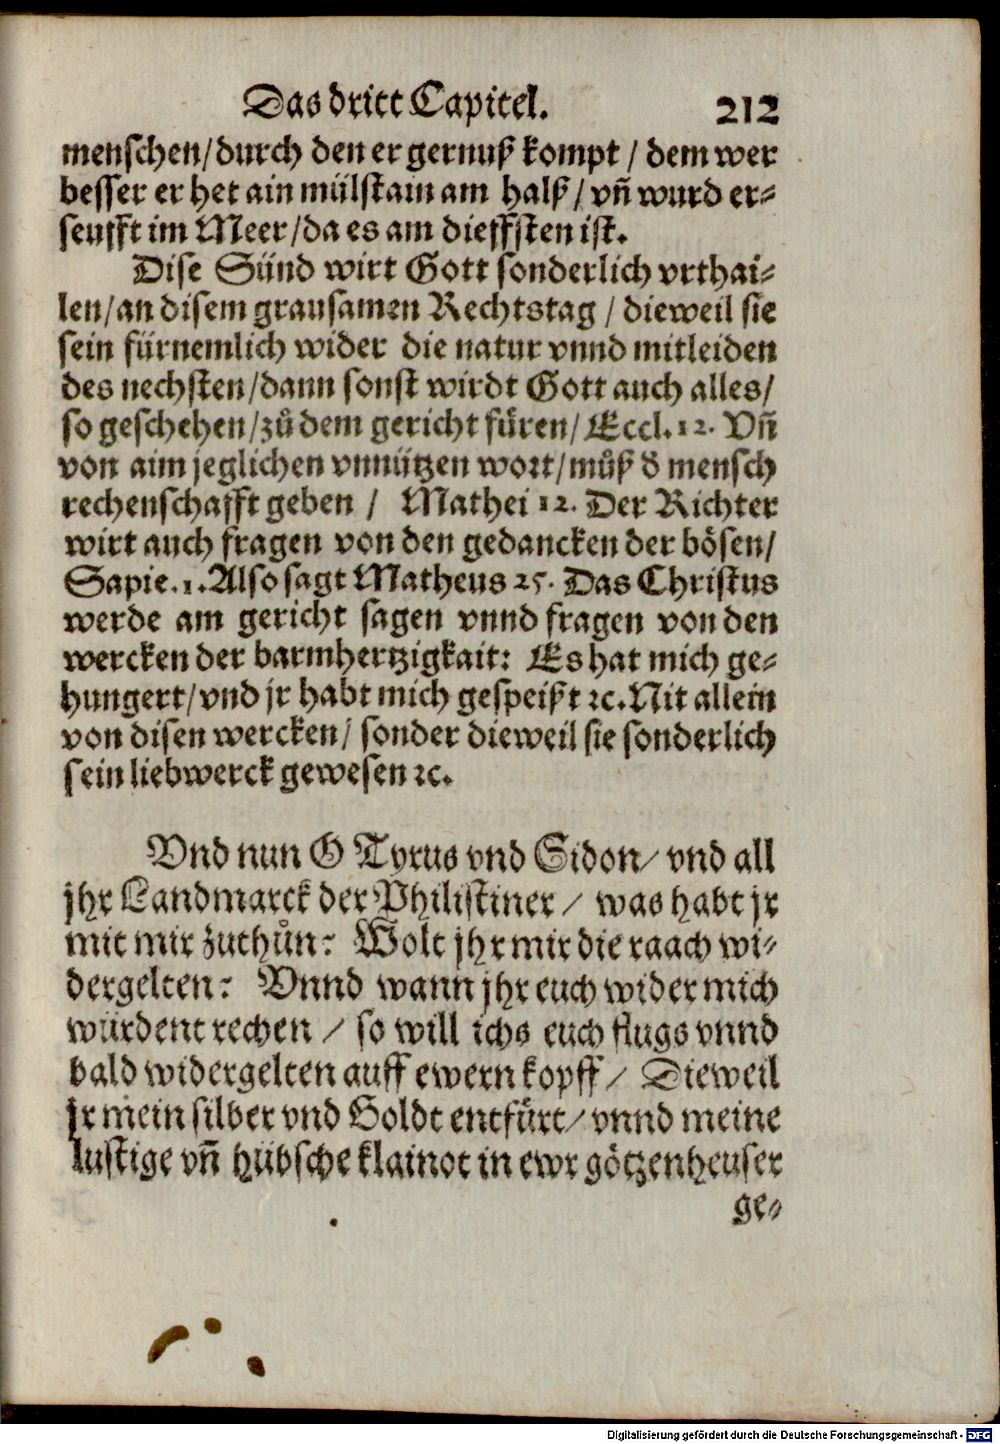 Das dritt Capitel. 212
menschen/durch den ergernuß kompt / dem wer
besser er het ain mülstain am halß / vñ wurd er-
seufft im Meer/da es am dieffsten ist.
Dise Sünd wirt Gott sonderlich vrthai-
len/an disem grausamen Rechtstag / dieweil sie
sein fürnemlich wider die natur vnnd mitleiden
des nechsten/dann sonst wirdt Gott auch alles/
so geschehen/zů dem gericht füren/ Eccl. 12. Vñ
von aim jeglichen vnnützen wort/můß d mensch
rechenschafft geben / Mathei 12. Der Richter
wirt auch fragen von den gedancken der bösen/
Sapie. 1. Also sagt Matheus 25. Das Christus
werde am gericht sagen vnnd fragen von den
wercken der barmhertzigkait: Es hat mich ge-
hungert/vnd jr habt mich gespeißt ꝛc. Nit allein
von disen wercken/ sonder dieweil sie sonderlich
sein liebwerck gewesen ꝛc.
Vnd nun O Tyrus vnd Sidon/ vnd all
jhr Landmarck der Philistiner / was habt jr
mit mir zuthůn: Wolt jhr mir die raach wi-
dergelten: Vnnd wann jhr euch wider mich
würdent rechen / so will ichs euch flugs vnnd
bald widergelten auff ewern kopff / Dieweil
jr mein silber vnd Goldt entfürt/ vnnd meine
lustige vñ hübsche klainot in ewr götzenheuser
ge-
Digitalisierung gefördert durch die Deutsche Forschungsgemeinschaft - DFG